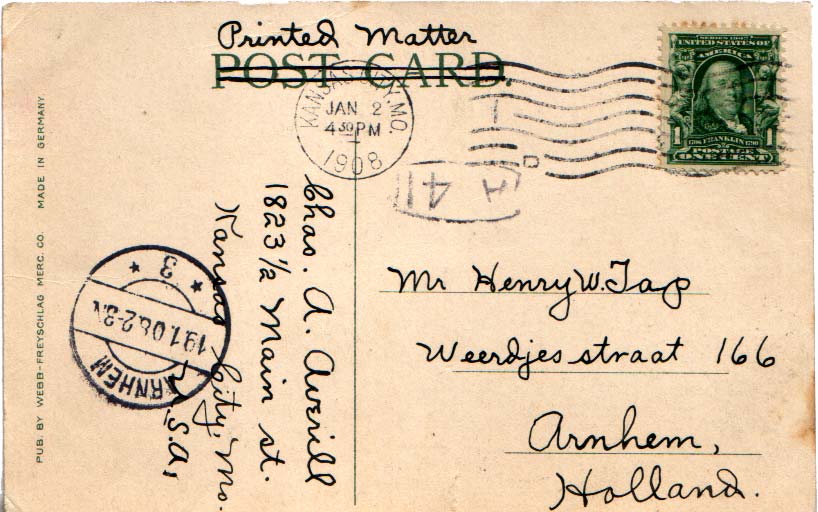 Printed Matter
POST CARD.
KANSAS CITY, MO.
JAN 2
4 30 PM
1908
SERIES 1902
UNITED STATES OF
AMERICA
1 1
1706 FRANKLIN 1790
POSTAGE
ONE CENT
A 41
D
Mr Henry W. Tap
Weerdjesstraat 166
Arnhem,
Holland.
Chas. A. Averill
1823 1/2 Main st.
Kansas City, Mo.
U.S.A,
ARNHEM
19.1.08.2-3N
* 3 *
PUB. BY WEBB-FREYSCHLAG MERC. CO. MADE IN GERMANY.